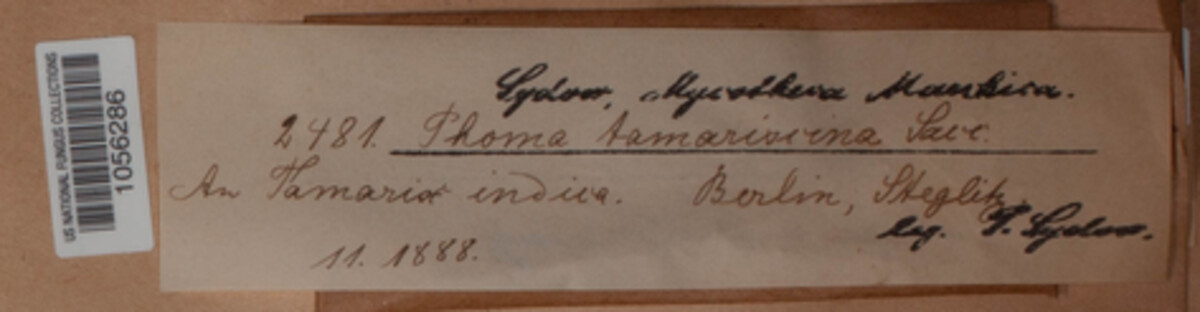 US NATIONAL FUNGUS COLLECTIONS
1056286
Sydow, Mycotheca Marchica.
2481. Phoma tamariscina Sacc.
An Tamarix indica. Berlin, Steglitz
leg. P. Sydow.
11. 1888.